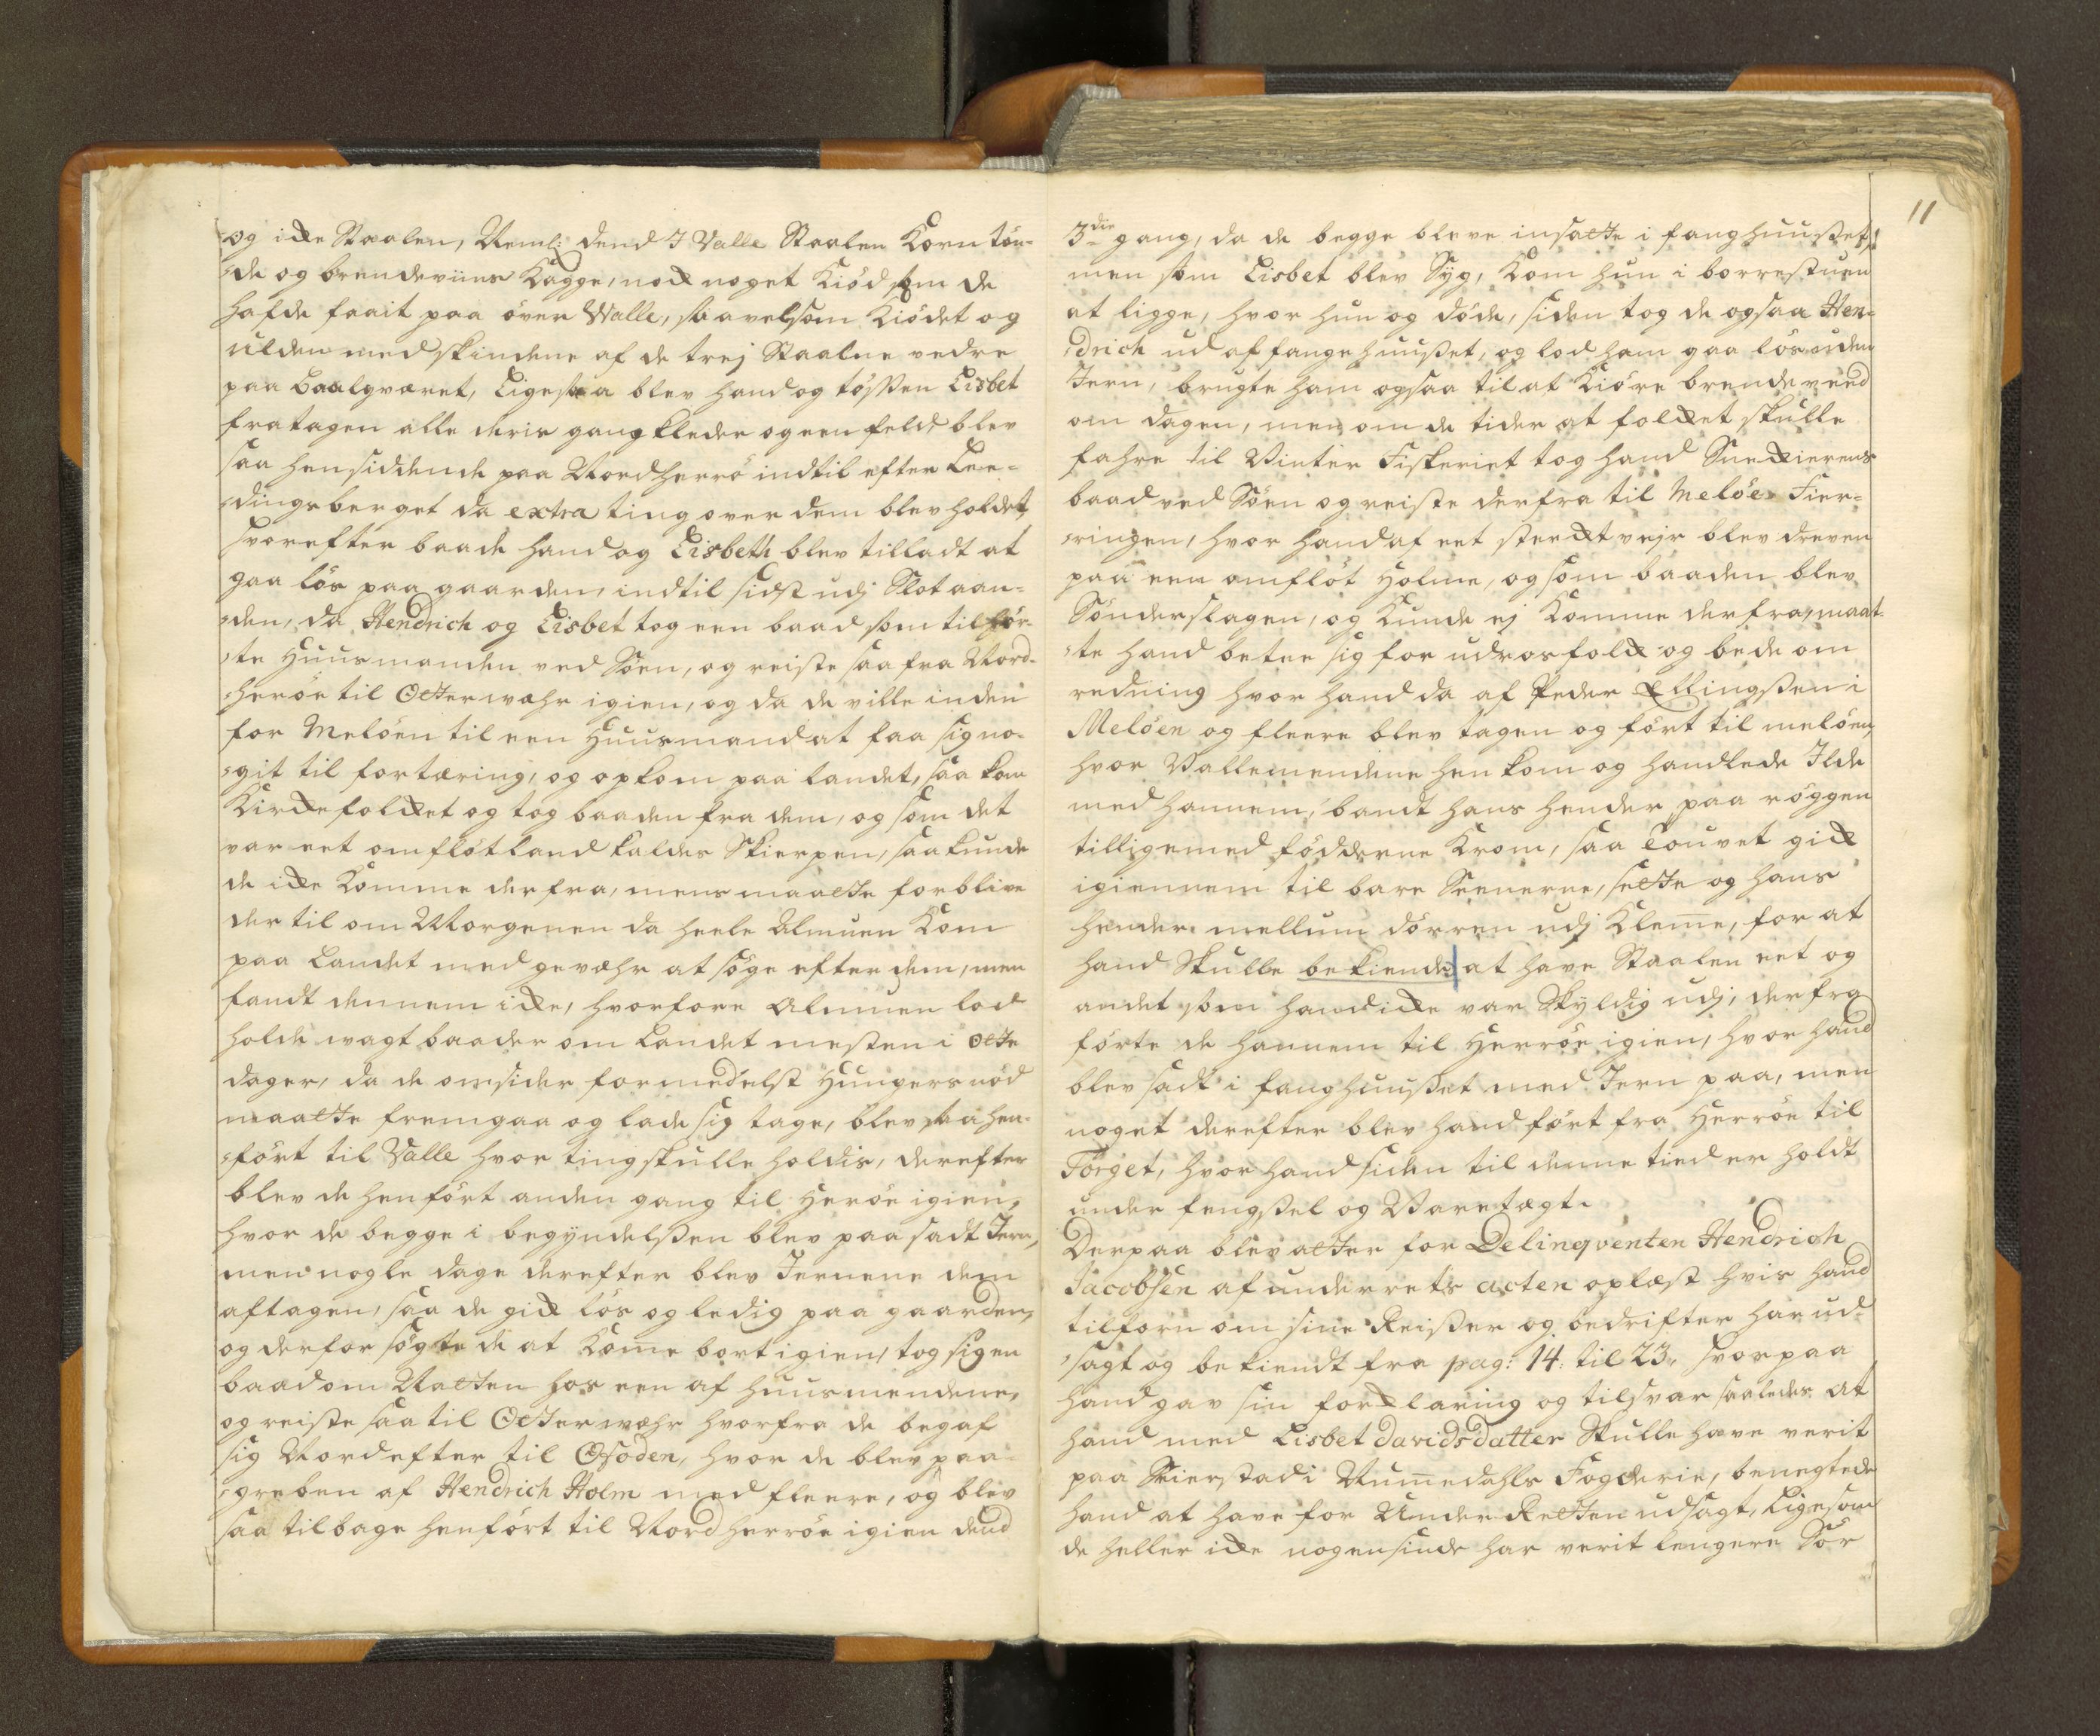 og icke Staalen, Neml: dend I Valle Staalen Korn tön-
de og brendeviins Kagge, nock noget Kiöd som de
hafde faait paa över Walle, saavelsom Kiödet og
ulden med skindene af de trej Staalne vedre
paa Baalgværet, Ligesaa blev hand og tössen Lisbet
fratagen alle deris gangkleder og een feld, blev
saa hensiddende paa Nordherrö indtil efter Lee-
dings berget da extra ting over dem blev holdet,
hvorefter baade hand og Lisbeth blev tilladt at
gaa lös paa gaarden, indtil sidst udj Slotaan-
den, da Hendrich og Lisbet tog een baad som tilhör-
te Huusmanden ved Söen, og reiste saa fra Nord-
heröe til Otterwæhr igien, og da de ville inden
for Melöen til een Huusmand at faa sig no-
git til fortæring, og opkom paa landet, saa kom
Kirckefolcket og tog baaden fra dem, og som det
var eet omflöt land kaldes Skierpen, saa kunde
de icke Komme derfra, mens maatte forblive
der til om Morgenen da heele Almuen Kom
paa Landet med gevæhr at söge efter dem, men
fandt dennem icke, hvorfore Almuen lod
holde wagt baader om Landet mesten i otte
dager, da de omsider formedelst Hungers nöd
maatte fremgaa og lade sig tage, blev saa hen-
fört til Valle hvor ting skulle holdis, derefter
blev de henfört anden gang til Heröe igien,
hvor de begge i begyndelsen blev paasadt Jern,
men nogle dage derefter blev Jernene dem
aftagen, saa de gick lös og ledig paa gaarden,
og derfor sögte de at Kome bort igien, tog sig en
baad om Natten hos een af huusmendene,
og reiste saa til Otterwæhr hvorfra de begaf
sig Nordefter til Ofoden, hvor de blev paa-
greben af Hendrich Holm med fleere, og blev
saa tilbage henfört til Nordherröe igien dend
11
3die gang, da de begge bleve insatte i fanghuuset,
men som Lisbet blev Syg, Kom hun i borrestuen
at ligge, hvor hun og döde, siden tog de ogsaa Hen-
drich ud af fangehuuset, og lod ham gaa lös uden
Jern, brugte ham ogsaa til at Kiöre brendeveed
om dagen, men om de tider at folcket skulle
fahre til Vinter Fiskeriet tog hand Sneckierens
baad ved Söen og reiste derfra til Melöe Fier-
ringen, hvor hand af eet sterckt vejr blev dreven
paa een omflöt Holme, og som baaden blev
Sönderslagen, og Kunde ej Komme derfra, maat-
te hand betee sig for udrorsfolck og bede om
redning hvor hand da af Peder Ellingsen i
Melöen og fleere blev tagen og fört til melöen,
hvor Vallemendene hen kom og handlede Ilde
med hannem, bandt hans hender paa röggen
tilligemed födderne Krom, saa Touvet gick
igiennem til bare Seenerne, sette og hans
hender mellum dörren udj Kleme, for at
hand Skulle bekiende at have Staalen eet og
andet som hand icke var Skyldig udj, derfra
förte de hannem til Herröe igien, hvor hand
blev sadt i fanghuuset med Jern paa, men
noget derefter blev hand fört fra Herröe til
Torget, hvor hand siden til denne tied er holdt
under fengsel og Varetægt.
Derpaa blev atter for Delinqventen Hendrich
Jacobsen af underrets acten oplæst hvis hand
tilforn om sine Reiser og bedrifter har ud-
sagt og bekiendt fra pag: 14. til 23, hvorpaa
hand gav sin forcklaring og tilsvar saaledes at
hand med Lisbet Davidsdatter Skulle have verit
paa Seierstad i Numedahls Fogderie, benegtede
hand at have for Under Retten udsagt, Ligesom
de heller icke nogensinde har verit lengere Sör